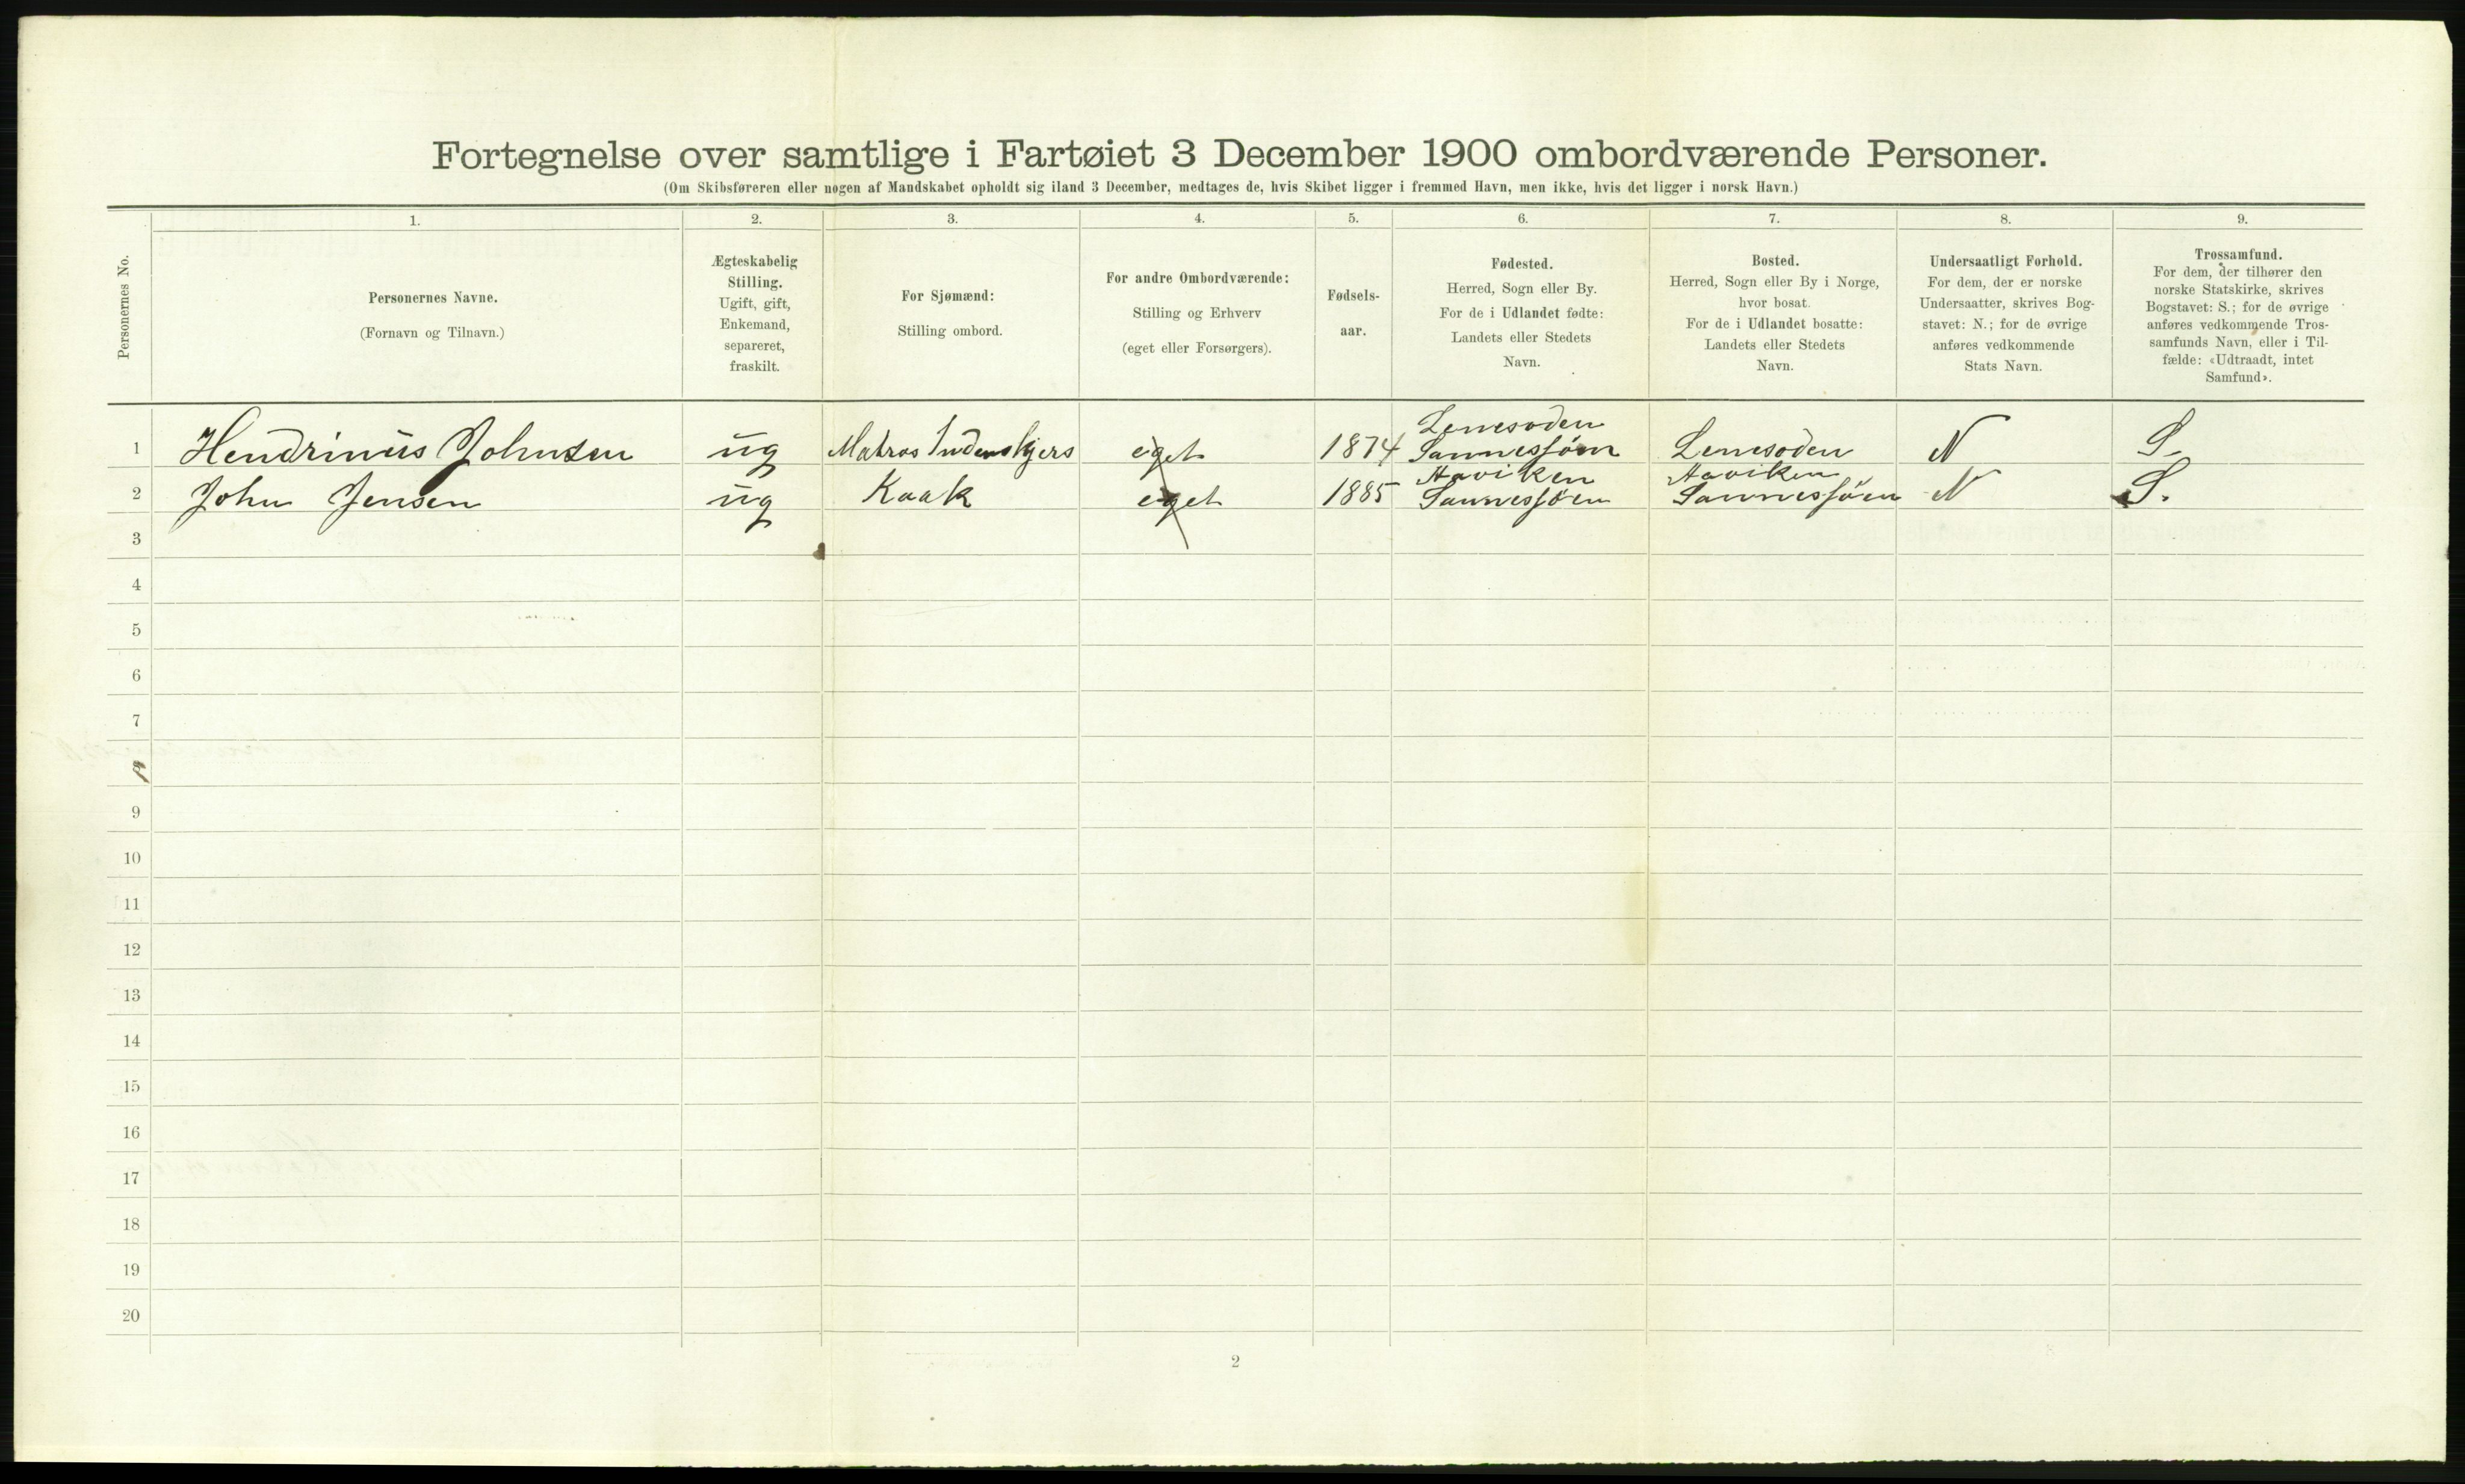 Fortegnelse over samtlige i Fartøiet 3 December 1900 ombordværende Personer.
(Om Skibsføreren eller nogen af Mandskabet opholdt sig iland 3 December, medtages de, hvis Skibet ligger i fremmed Havn, men ikke, hvis det ligger i norsk Havn.)
Personernes No.
1. 2. 3. 4. 5. 6. 7. 8. 9.
Personernes Navne.
(Fornavn og Tilnavn.)
Ægteskabelig
Stilling.
Ugift, gift,
Enkemand,
separeret,
fraskilt.
For Sjømænd:
Stilling ombord.
For andre Ombordværende:
Stilling og Erhverv
(eget eller Forsørgers).
Fødsels-
aar.
Fødested.
Herred, Sogn eller By.
For de i Udlandet fødte:
Landets eller Stedets
Navn.
Bosted.
Herred, Sogn eller By i Norge,
hvor bosat.
For de i Udlandet bosatte:
Landets eller Stedets
Navn.
Undersaatligt Forhold.
For dem, der er norske
Undersaatter, skrives Bog-
stavet: N.; for de øvrige
anføres vedkommende
Stats Navn.
Trossamfund.
For dem, der tilhører den
norske Statskirke, skrives
Bogstavet: S.; for de øvrige
anføres vedkommende Tros-
samfunds Navn, eller i Til-
fælde: «Udtraadt, intet
Samfund».
1 Hendrinus Johnsen ug Matros Indenskjers eget 1874 Lenesoden Sannessøen Lenesoden N S.
2 John Jensen ug Kaak eget 1885 Haviken Sannessøen Haviken Sannessøen N S.
3
4
5
6
7
9
10
11
12
13
14
15
16
17
18
19
20
2